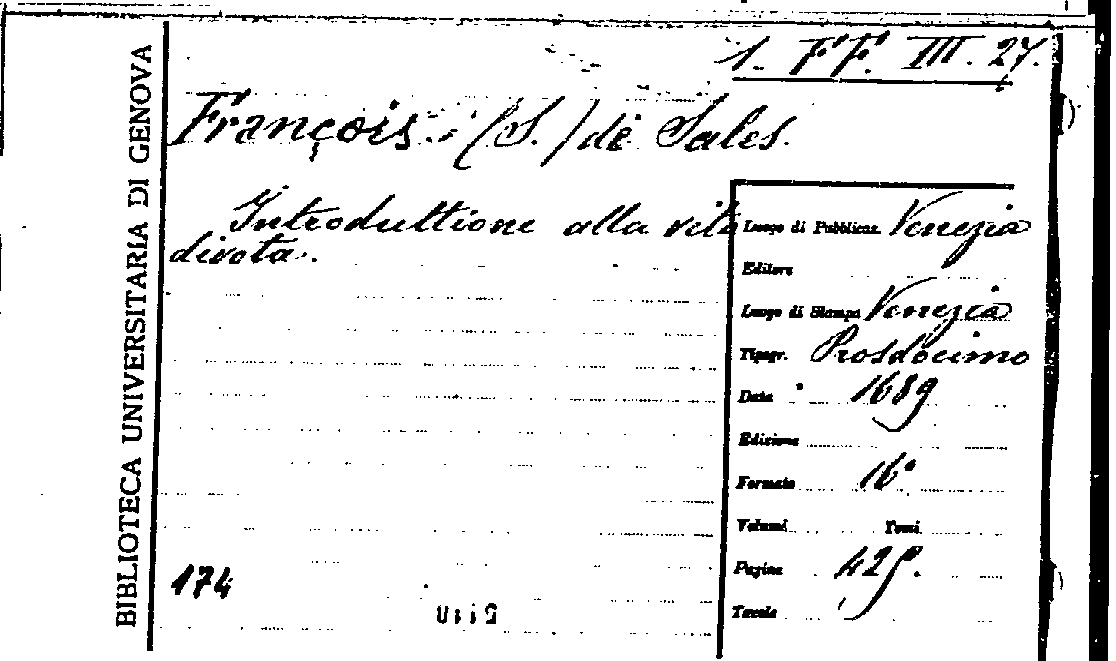 BIBLIOTECA UNIVERSITARIA DI GENOVA
1. FF. III. 27.
François (S.) de Sales.
Introduttione alla vita
divota.
Luogo di Pubblicaz. Venezia
Editore
Luogo di Stampa Venezia
Tipogr. Prosdocimo
Data 1689
Edizione
Formato 16°
Volumi Tomi
Pagine 425.
Tavole
174